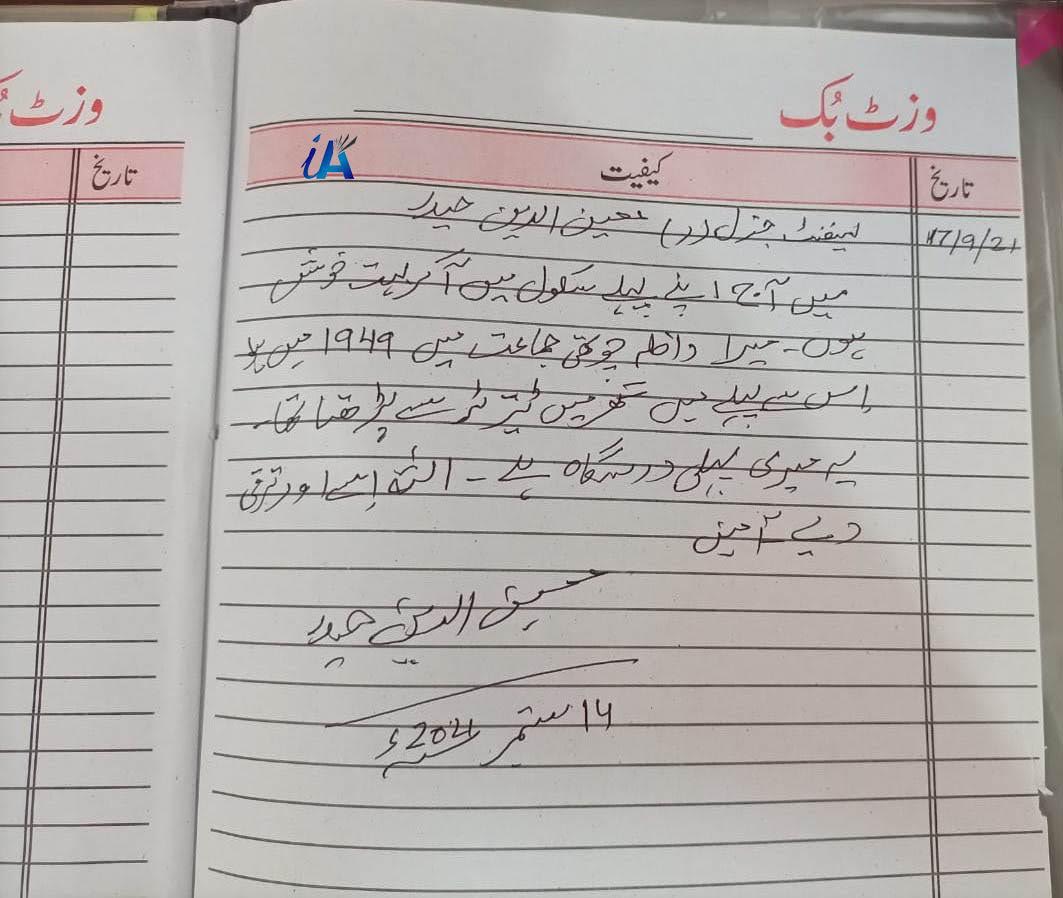 وزٹ بُک
وزٹ بُک
تاریخ
کیفیت
تاریخ
iA
17/9/21
لیفٹننٹ جنرل (ر) معین الدین حیدر
میں آج اپنے پہلے سکول میں آ کر بہت خوش
ہوں۔ میرا داخلہ چوتھی جماعت میں 1949 میں ہوا
اِس سے پہلے میں گھر میں ٹیوٹر سے پڑھتا تھا۔
یہ میری پہلی درسگاہ ہے۔ اللہ اِسے اور ترقی
دے آمین
معین الدین حیدر
14 ستمبر 2021ء